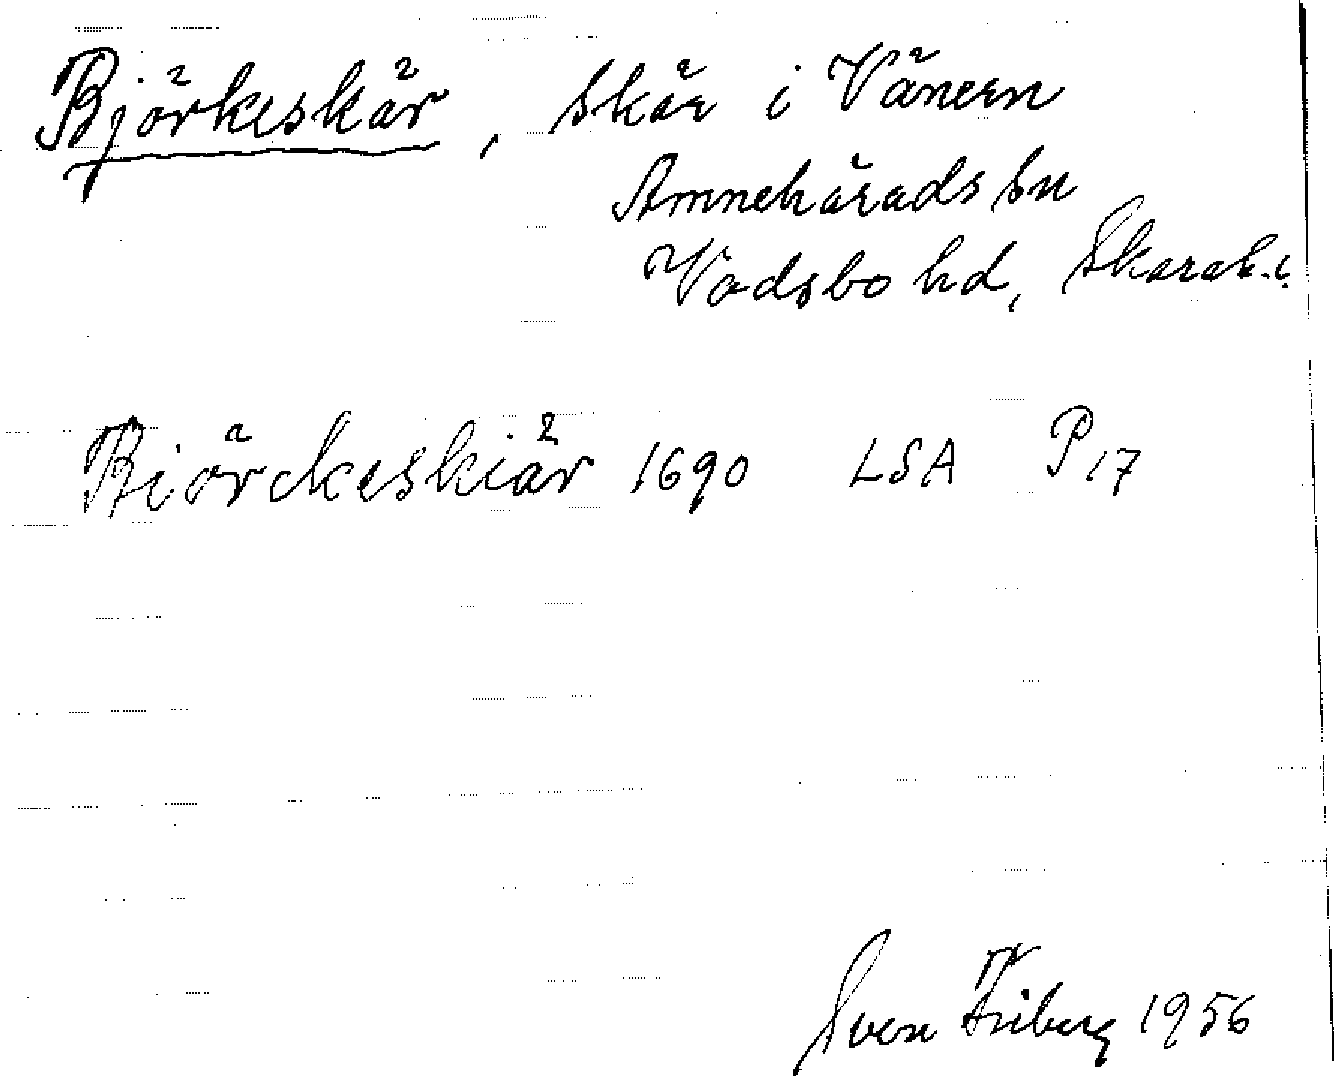 Björkeskär, skär i Vänern
Amnehärads sn
Vadsbo hd, Skarab.l.
Biörckeskiär 1690 LSA P17
Sven Friberg 1956